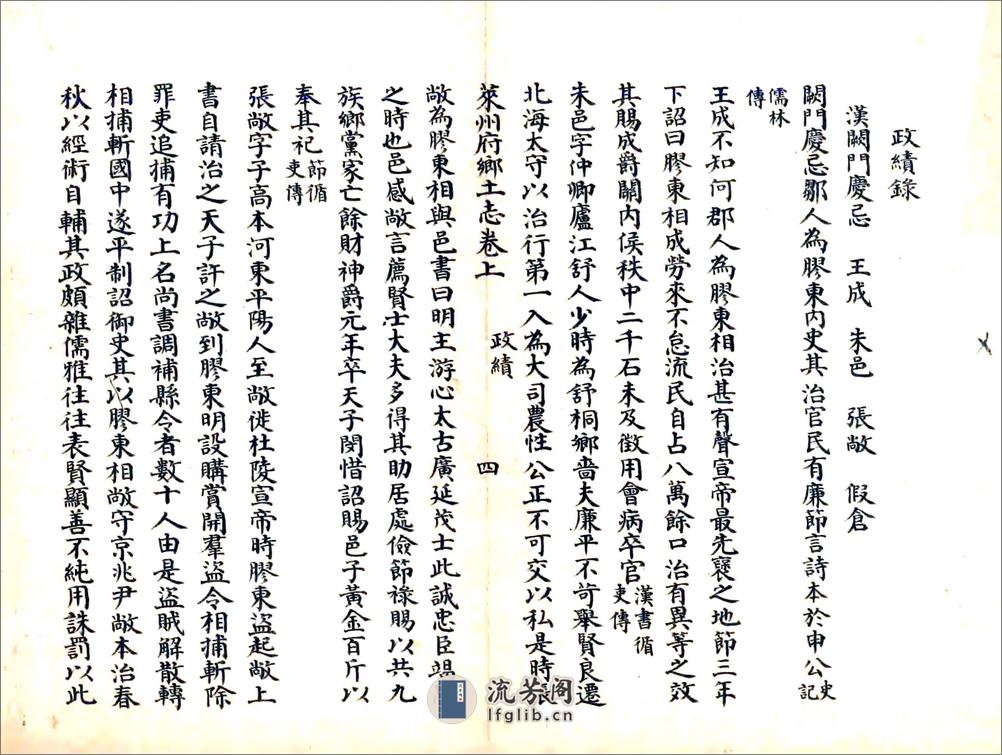 政績錄
漢闕門慶忌　王成　朱邑　張敞　假倉
闕門慶忌鄒人為膠東內史其治官民有廉節言詩本於申公史記
儒林傳
王成不知何郡人為膠東相治甚有聲宣帝最先襃之地節三年
下詔曰膠東相成勞來不怠流民自占八萬餘口治有異等之效
其賜成爵關內侯秩中二千石未及徵用會病卒官漢書循吏傳
朱邑字仲卿廬江舒人少時為舒桐鄉嗇夫廉平不苛舉賢良遷
北海太守以治行第一入為大司農性公正不可交以私是時張
萊州府鄉土志卷上　政績　四
敞為膠東相與邑書曰明主游心太古廣延茂士此誠忠臣竭
之時也邑感敞言薦賢士大夫多得其助居處儉節祿賜以共九
族鄉黨家亡餘財神爵元年卒天子閔惜詔賜邑子黃金百斤以
奉其祀節循吏傳
張敞字子高本河東平陽人至敞徙杜陵宣帝時膠東盜起敞上
書自請治之天子許之敞到膠東明設購賞開羣盜令相捕斬除
罪吏追捕有功上名尚書調補縣令者數十人由是盜賊解散轉
相捕斬國中遂平制詔御史其以膠東相敞守京兆尹敞本治春
秋以經術自輔其政頗雜儒雅往往表賢顯善不純用誅罰以此
流芳阁
lfglib.cn